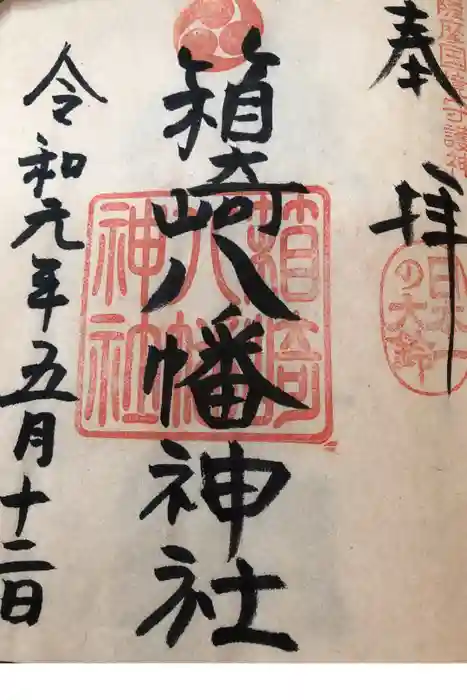 奉拝
日本一
の大鈴
箱崎八幡神社
箱崎
八幡
神社
令和元年五月十二日